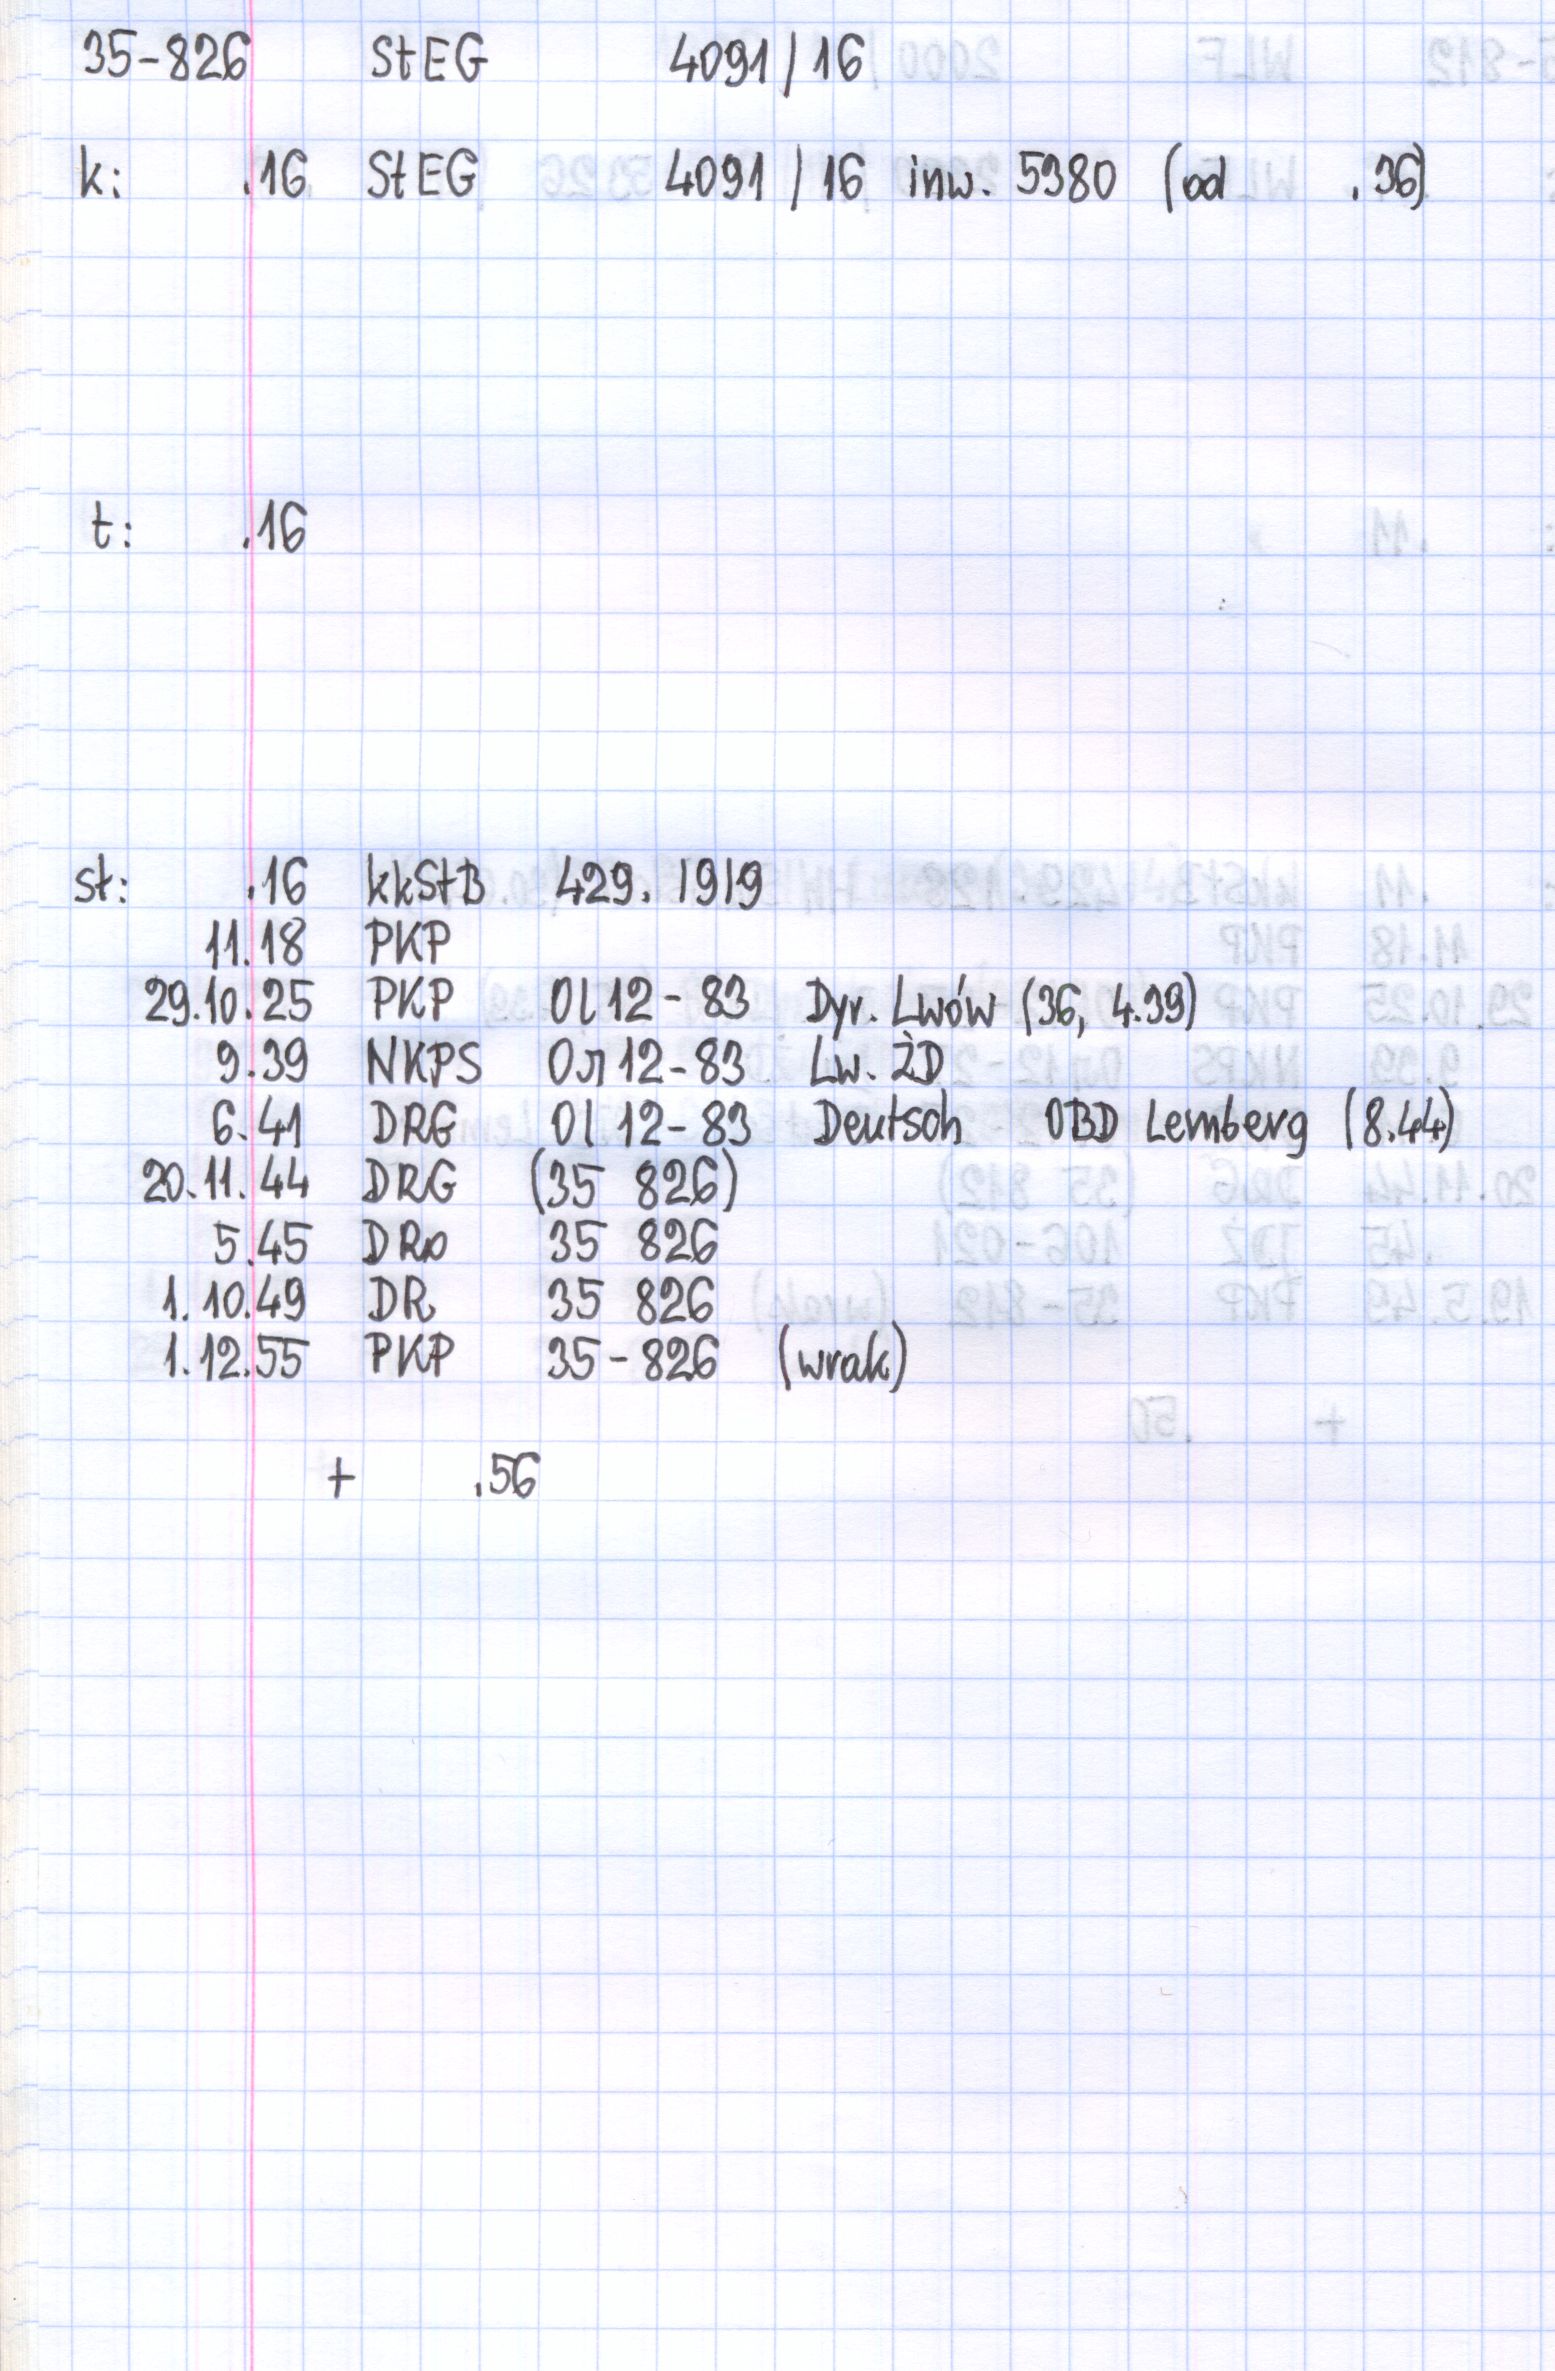 35-826 StEG 4091/16
k: .16 StEG 4091/16 inw. 5380 (od .36)
t: .16
st: .16 kkStB 429.1919
11.18 PKP
29.10.25 PKP Ol12-83 Dyr. Lwów (36, 4.39)
9.39 NKPS Ол12-83 Lw. ŻD
6.41 DRG Ol12-83 Deutsch OBD Lemberg (8.44)
20.11.44 DRG (35 826)
5.45 DRo 35 826
1.10.49 DR 35 826
1.12.55 PKP 35-826 (wrak)
+ .56